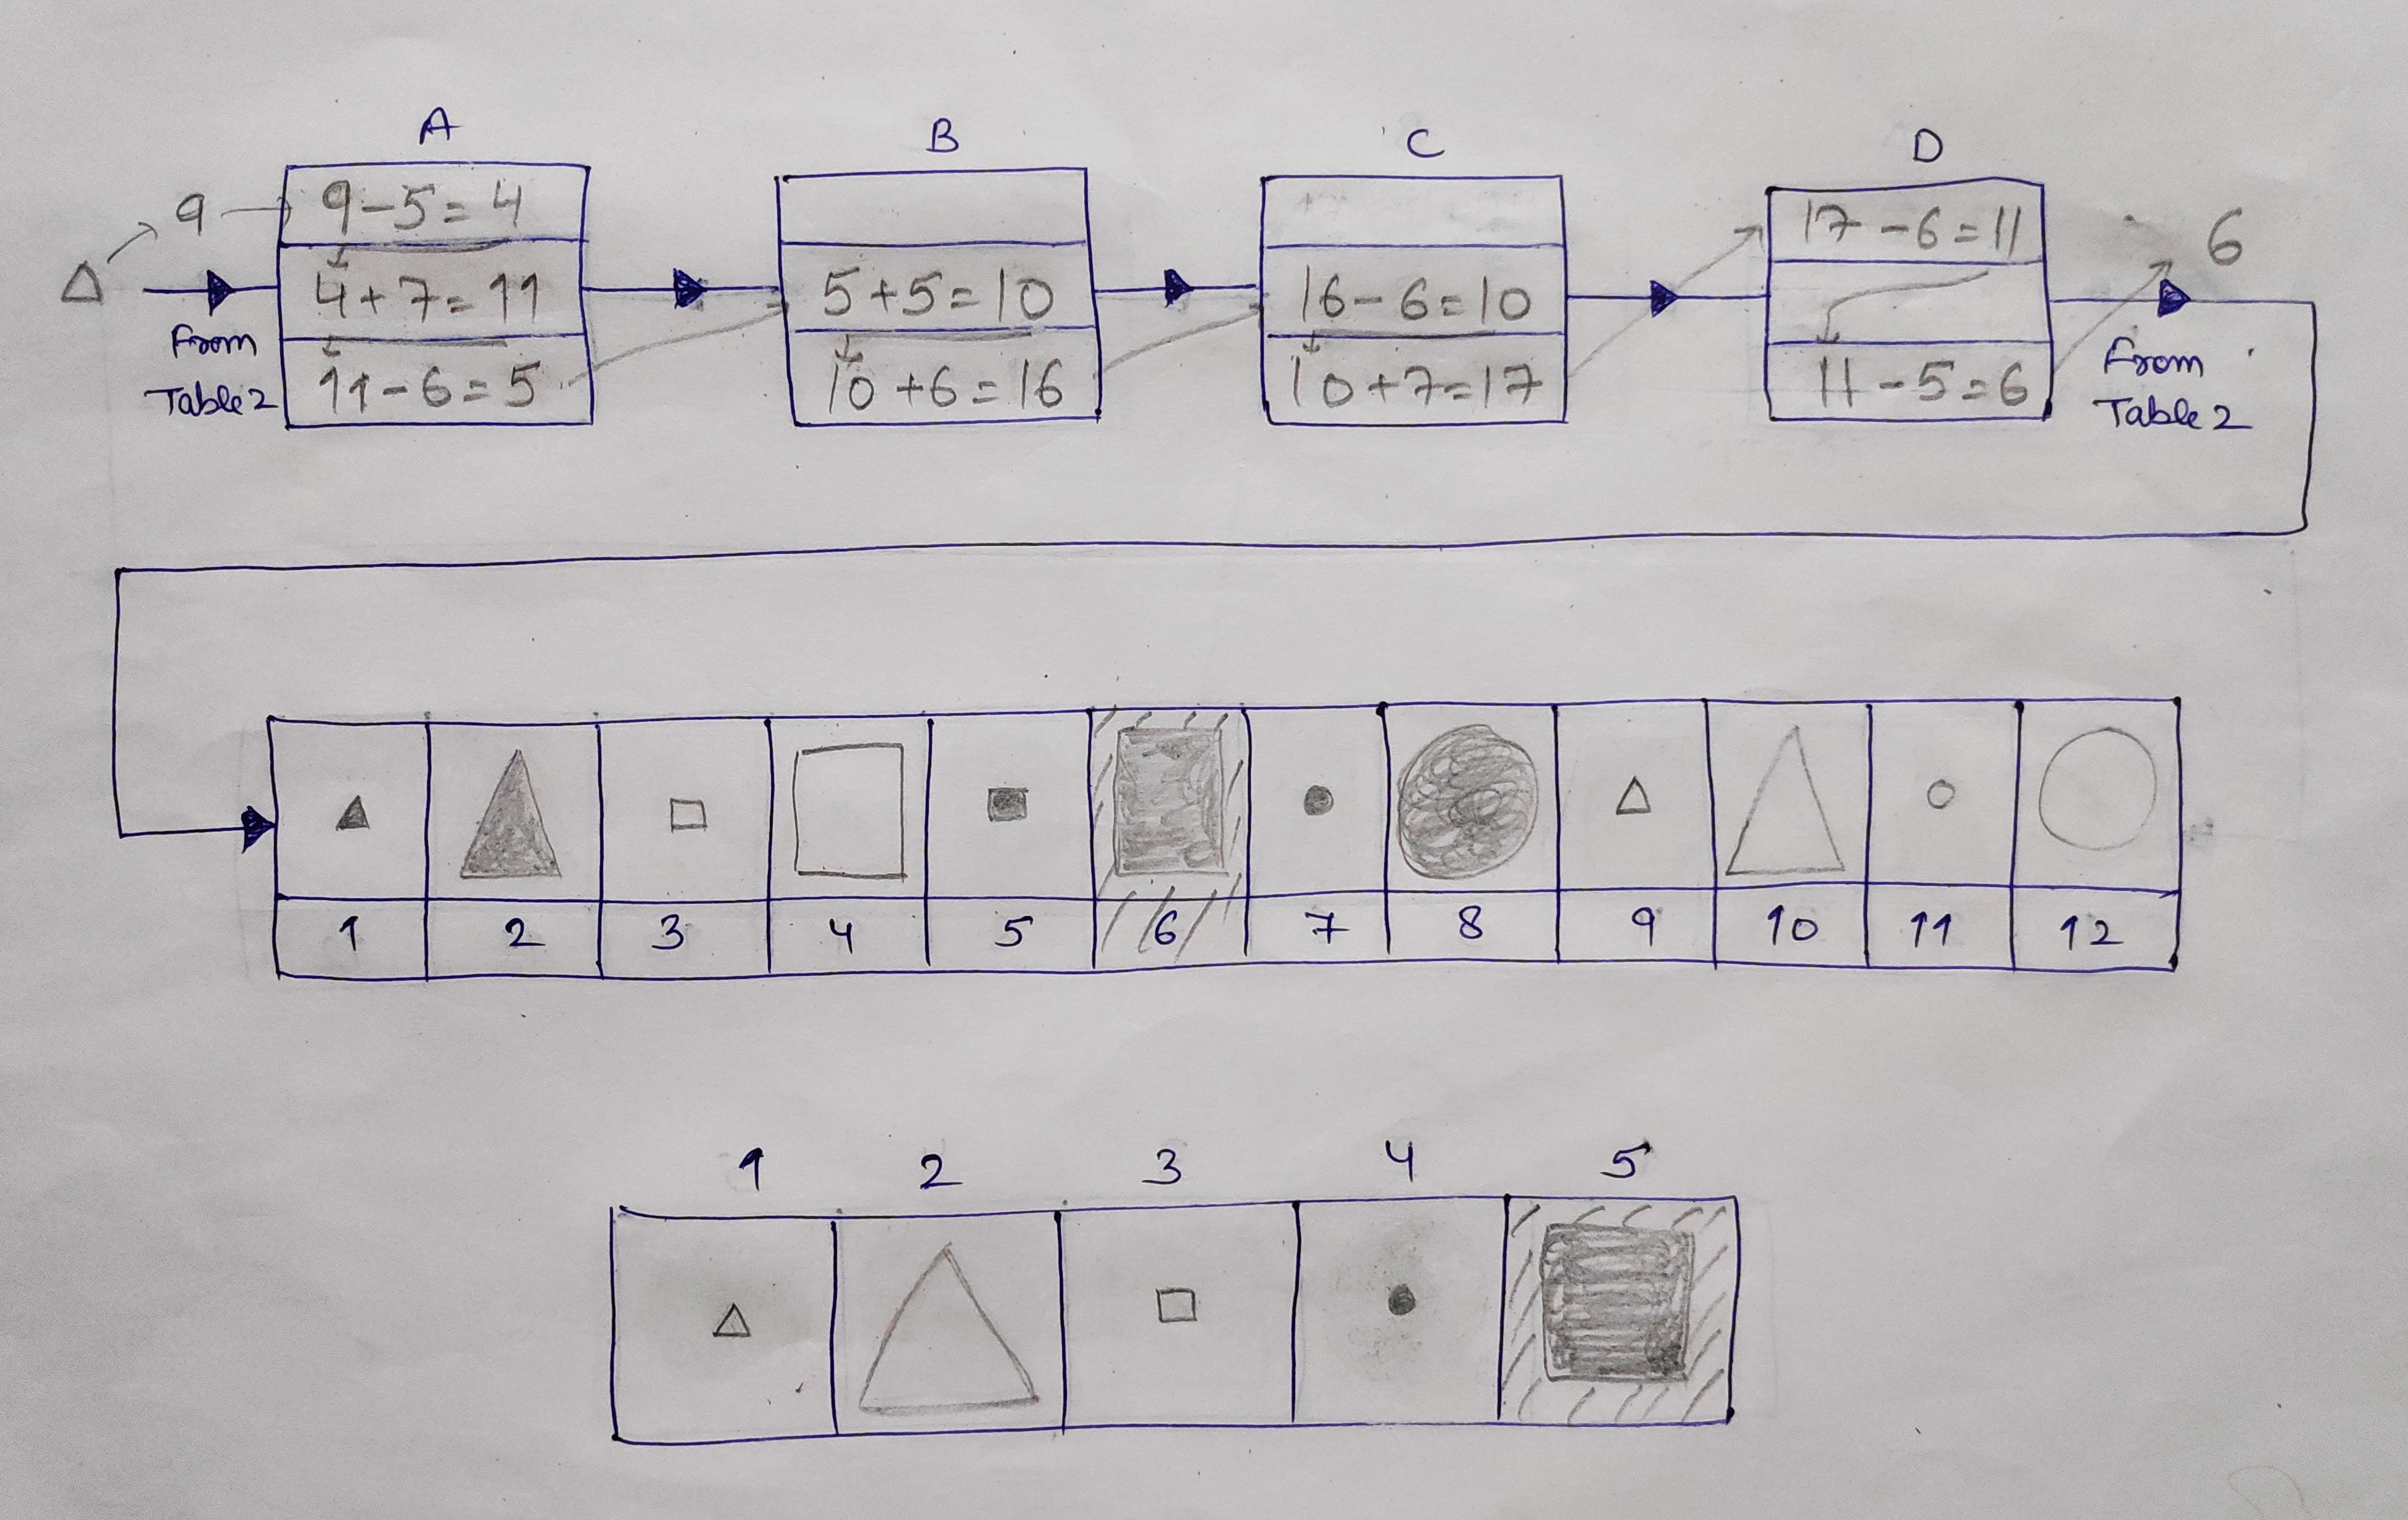 A
B
C
D
9
9-5=4
4+7=11
11-6=5
5+5=10
10+6=16
16-6=10
10+7=17
17-6=11
11-5=6
6
From
Table 2
From
Table 2
1 2 3 4 5 6 7 8 9 10 11 12
1 2 3 4 5